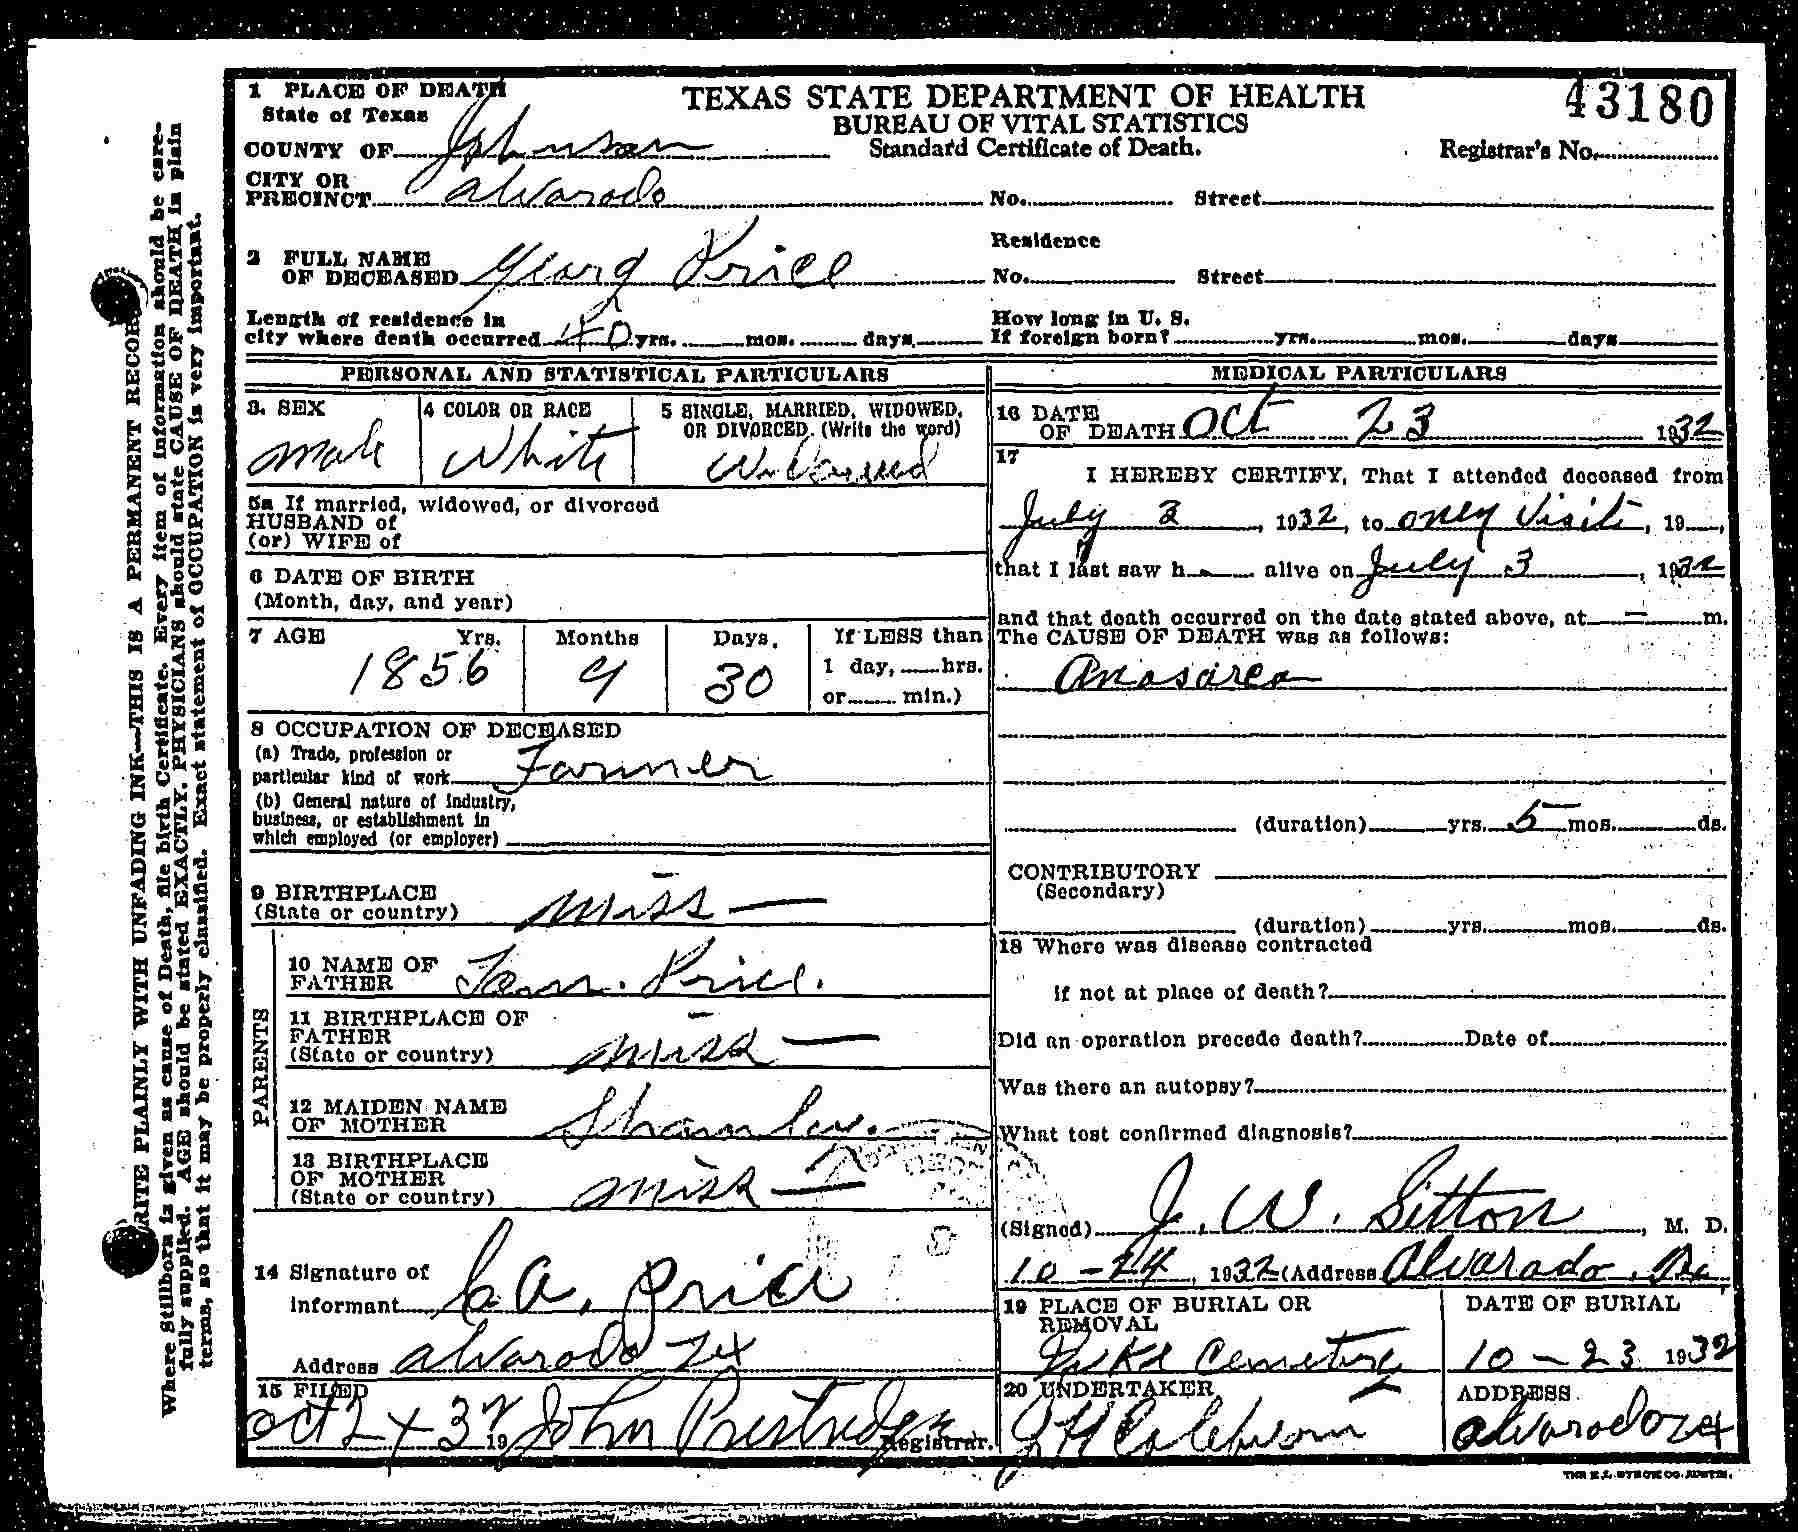 43180
1 PLACE OF DEATH
State of Texas
TEXAS STATE DEPARTMENT OF HEALTH
BUREAU OF VITAL STATISTICS
Standard Certificate of Death.
Registrar's No.
COUNTY OF Johnson
CITY OR
PRECINCT alvarado No. Street
2 FULL NAME
OF DECEASED Georg Price
Residence
No. Street
Length of residence in
city where death occurred 40 yrs. mos. days.
How long in U. S.
If foreign born? yrs. mos. days
PERSONAL AND STATISTICAL PARTICULARS
3. SEX
male
4 COLOR OR RACE
White
5 SINGLE, MARRIED, WIDOWED,
OR DIVORCED. (Write the word)
5a If married, widowed, or divorced
HUSBAND of
(or) WIFE of
6 DATE OF BIRTH
(Month, day, and year)
7 AGE Yrs. Months Days. If LESS than
1 day, hrs.
or min.)
1856 9 30
8 OCCUPATION OF DECEASED
(a) Trade, profession or
particular kind of work Farmer
(b) General nature of industry,
business, or establishment in
which employed (or employer)
9 BIRTHPLACE
(State or country) miss —
PARENTS
10 NAME OF
FATHER Tom. Price.
11 BIRTHPLACE OF
FATHER
(State or country) miss —
12 MAIDEN NAME
OF MOTHER
13 BIRTHPLACE
OF MOTHER
(State or country) miss —
14 Signature of
Informant Price
Address alvarado Tex
15 FILED
Oct 24 32 19 John Prestridge
Registrar.
MEDICAL PARTICULARS
16 DATE
OF DEATH Oct 23 1932
17
I HEREBY CERTIFY, That I attended deceased from
July 3, 1932, to only Visit, 19
that I last saw h alive on July 3, 1932
and that death occurred on the date stated above, at — m.
The CAUSE OF DEATH was as follows:
Anasarca
(duration) yrs. 5 mos. ds.
CONTRIBUTORY
(Secondary)
(duration) yrs. mos. ds.
18 Where was disease contracted
if not at place of death?
Did an operation precede death? Date of
Was there an autopsy?
What test confirmed diagnosis?
(Signed) J. W. Sitton, M. D.
10-24, 1932 (Address Alvarado
19 PLACE OF BURIAL OR
REMOVAL
Cemetery
DATE OF BURIAL
10-23 1932
20 UNDERTAKER
ADDRESS
alvarado Tex
WRITE PLAINLY WITH UNFADING INK—THIS IS A PERMANENT RECORD
Where Stillborn is given as cause of Death, file birth Certificate. Every item of information should be care-
fully supplied. AGE should be stated EXACTLY. PHYSICIANS should state CAUSE OF DEATH in plain
terms, so that it may be properly classified. Exact statement of OCCUPATION is very important.